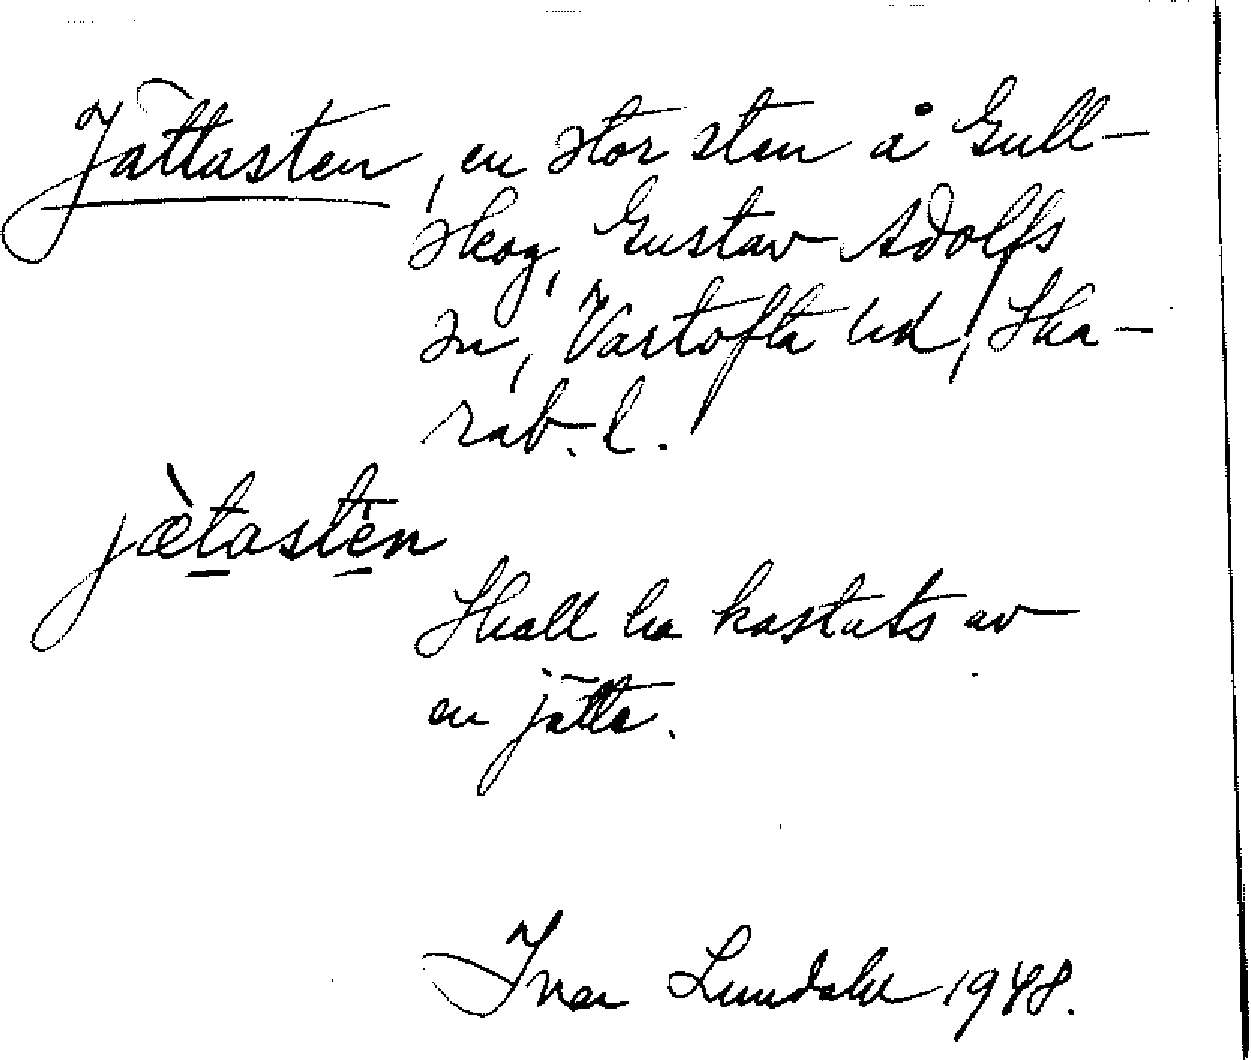 Jättasten, en stor sten å Gull-
skog, Gustav Adolfs
sn, Vartofta hd, Ska-
rab. l.
jæ̀tastèn
Skall ha kastats av
en jätte.
Ivar Lundahl 1948.